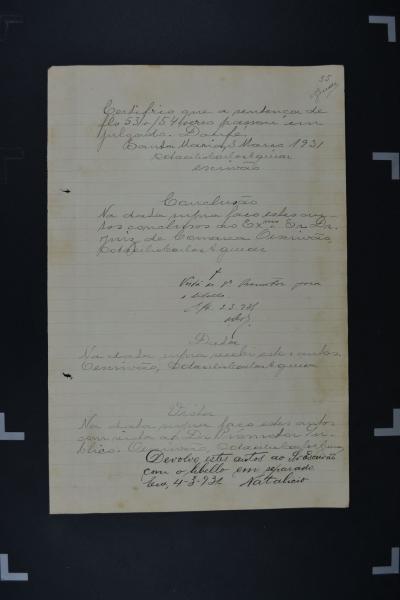 55
Certifico que a sentença de
fls 53 a 54 verso passou em
julgado. Dou fé.
Santa Maria, 3 Março 1931
Escrivão
Conclusão
Na data supra faço estes au-
tos conclusos ao Exmo Sr Dr.
Juiz de Comarca. O escrivão,
Vista ao Dr Promotor para
o libello.
S. M. 2-3-931
Data
Na data supra recebi estes autos.
O escrivão,
Vista
Na data supra faço estes autos
com vista ao Dr. Promotor Pu-
blico. O escrivão,
Devolvo estes autos ao Sr Escrivão
com o libello em separado
Em, 4-3-931 Natalicio